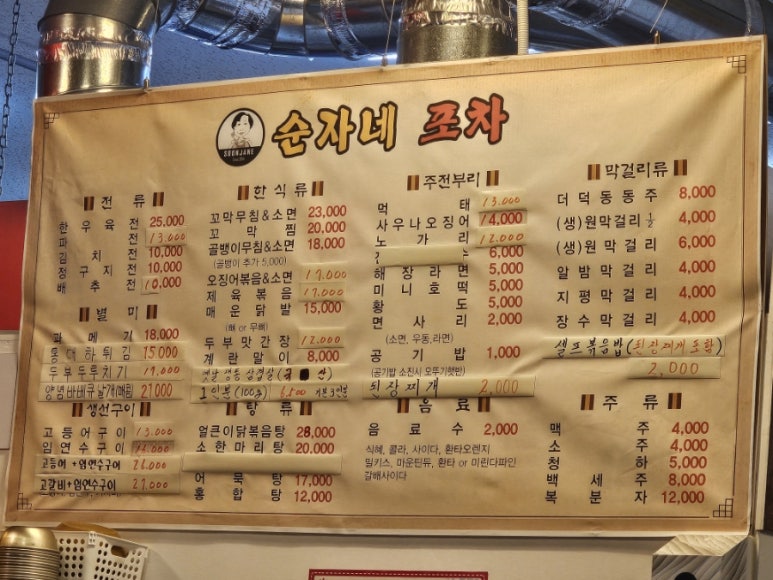 SOONJANE
순자네 포차
전 류
한우육전 25,000
파 전 13,000
김 치 전 10,000
정구지전 10,000
배 추 전 10,000
별 미
과 메 기 18,000
통대하튀김 15,000
두부두루치기 19,000
양념바베큐날개(매콤) 21000
생선구이
고등어구이 13,000
임연수구이
고등어+임연수구이 26,000
고갈비+임연수구이 27,000
한 식 류
꼬막무침&소면 23,000
꼬 막 찜 20,000
골뱅이무침&소면 18,000
(골뱅이 추가 5,000)
오징어볶음&소면 19,000
제 육 볶 음 17,000
매 운 닭 발 15,000
(뼈 or 무뼈)
두부맛간장 12,000
계 란 말 이 8,000
옛날 정통 삼겹살(국 산)
1인분(100g) 6,500 기본3인분
탕 류
얼큰이닭볶음탕 28,000
소한마리탕 20,000
어 묵 탕 17,000
홍 합 탕 12,000
주전부리
먹 태 13,000
사우나오징어 14,000
노 가 리 12,000
6,000
해 장 라 면 5,000
미 니 호 떡 5,000
황 도 5,000
면 사 리 2,000
(소면, 우동,라면)
공 기 밥 1,000
(공기밥 소진시 오뚜기햇반)
된장찌개 2,000
음 료
음 료 수 2,000
식혜, 콜라, 사이다, 환타오렌지
밀키스, 마운틴듀, 환타 or 미린다파인
갈해사이다
막걸리류
더덕동동주 8,000
(생)원막걸리½ 4,000
(생)원막걸리 6,000
알밤막걸리 4,000
지평막걸리 4,000
장수막걸리 4,000
셀프볶음밥(된장찌개 포함)
2,000
주 류
맥 주 4,000
소 주 4,000
청 하 5,000
백 세 주 8,000
복 분 자 12,000